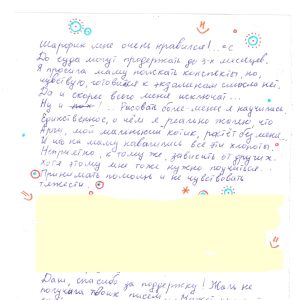 Шарфик мне очень нравится!.. =с
До суда могут продержать до 3-х месяцев.
Я просила маму поискать конспекты, но,
чувствую, готовиться к экзаменам смысла нет.
Да и скорее всего меня исключат...
Ну и !... Рисовать более-менее я научилась.
Единственное, о чём я реально жалею, что
мой маленький котик, растёт без меня...
И что на маму навалились все эти хлопоты.
Неприятно, к тому же, зависеть от других.
Хотя этому мне тоже нужно поучиться...
Принимать помощь и не чувствовать
тяжести.
Даш, спасибо за поддержку! Жаль не
получала твоих писем... Может